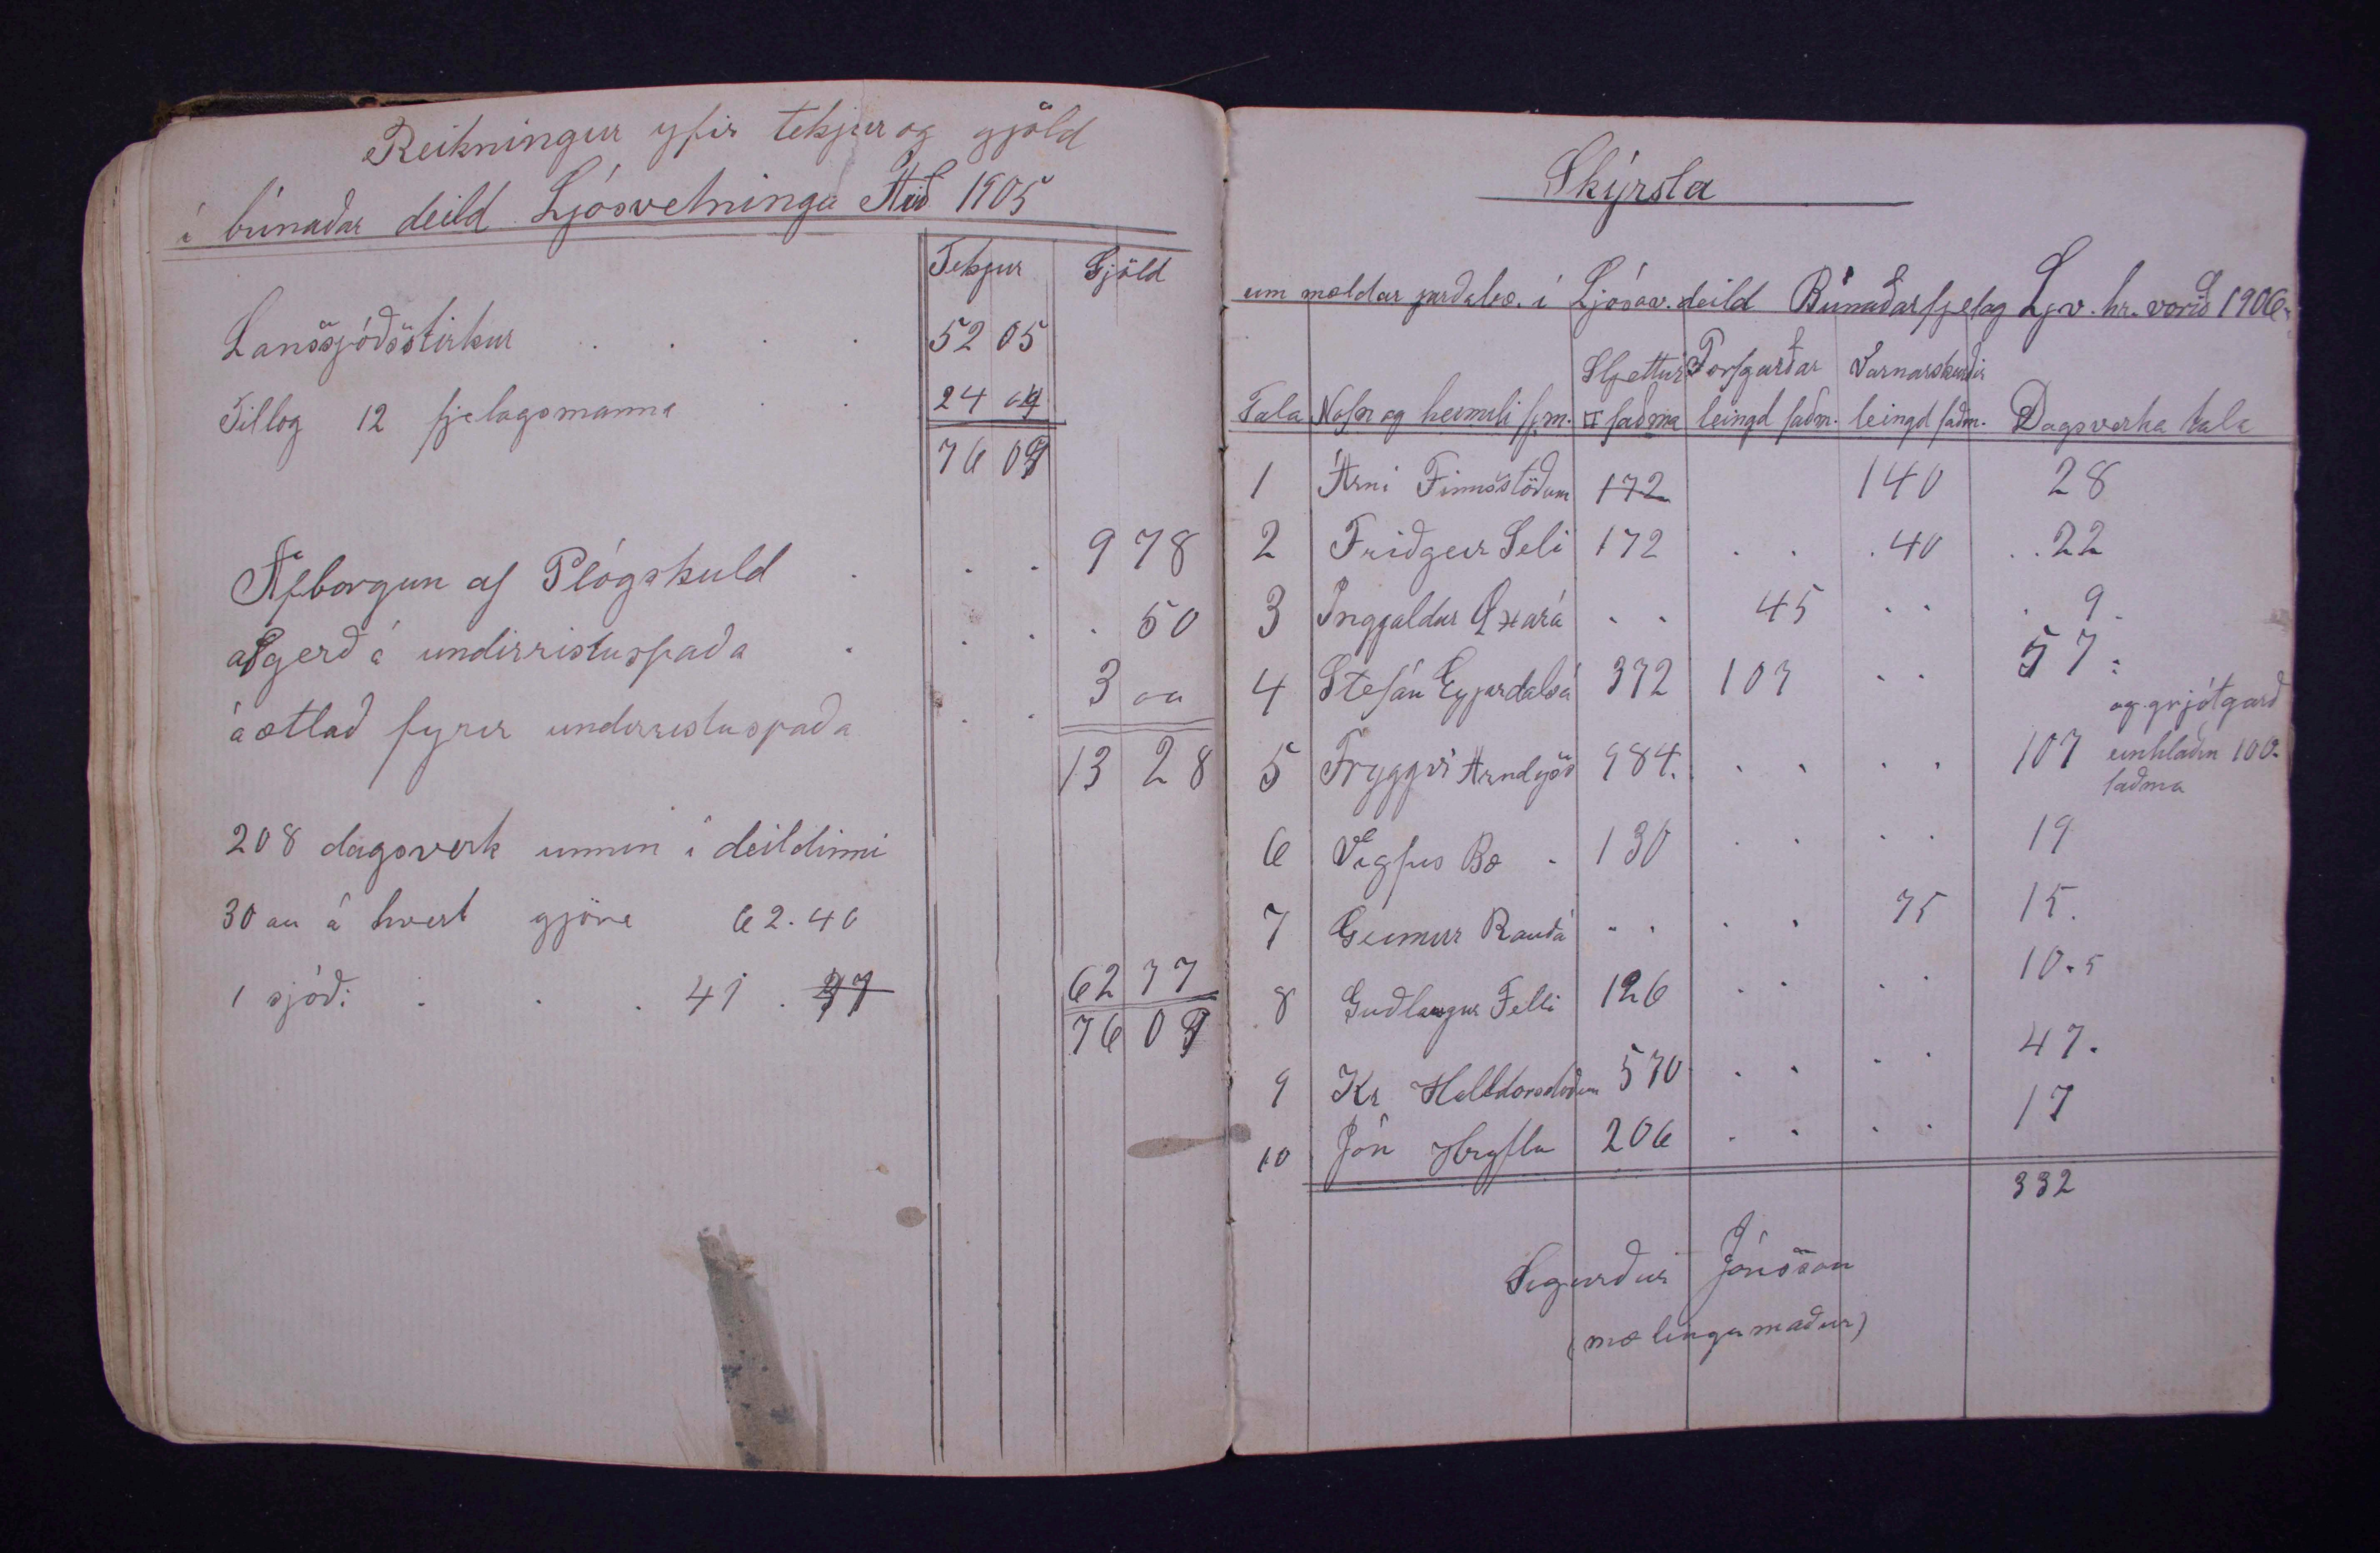 Reikningur yfir tekjur og gjöld
í búnaðar deild Ljósvetninga Árið 1905
Tekjur Gjöld
Lanssjóðsstirkur . . . . 52 05
Tillog 12 fjelagsmanna . . 24 04
76 09
Afborgun af Plógskuld . . . 9 78
afgerð á undirristuspaða . . . . 50
áætlað fyrir undirristuspaða . . 3 00
13 28
208 dagsverk unnin í deildinni
30 au á hvert gjöra 62.40
1 sjóði . . . 41 . 37
62 77
76 09
Skýrsla
um mældar jarðabæ. í Ljósav. deild Búnaðarfjelag Ljv. hr. vorið 1906.
Tala Nöfn og heimili fjm. Sljettur □ faðma Torfgarðar leingd faðm. Varnarskurðir leingd faðm. Dagsverka tala
1 Árni Finnsstöðum 172 140 28
2 Friðgeir Seli 172 . . . 40 . . 22
3 Inggaldur Öxará . . 45 . . . 9.
4 Stefán Eyjardalsá 372 107 . . 57.
og grjótgarð
5 Tryggvi Arndysst 984. . . . . 107 einhlaðin 100.
faðma
6 Vigfús Bæ . 130 . . . . 19
7 Geirmur Rauðá . . . . 75 15.
8 Guðlaugur Felli 126 . . . . 10.5
9 Kr Halldorsstoðum 570 . . . . 47.
10 Jón Hryflu 206 . . . . 17
332
Sigurður Jónsson
(mælingamaður)